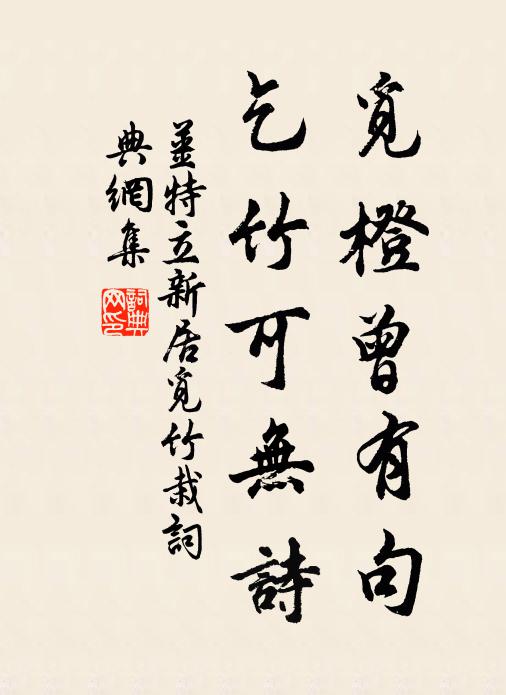 覓橙曾有句
乞竹可無詩
薑特立新居覓竹栽詞
典網集
詞典
网印